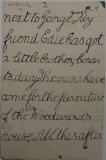 next to George. My
friend Edie has got
a little brother born
to day the vans have
come for the furniture
of the Woodwards
house. All this after